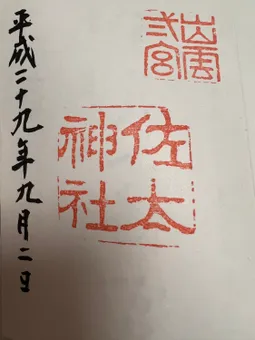 出雲
弍宮
佐太
神社
平成二十九年九月二日